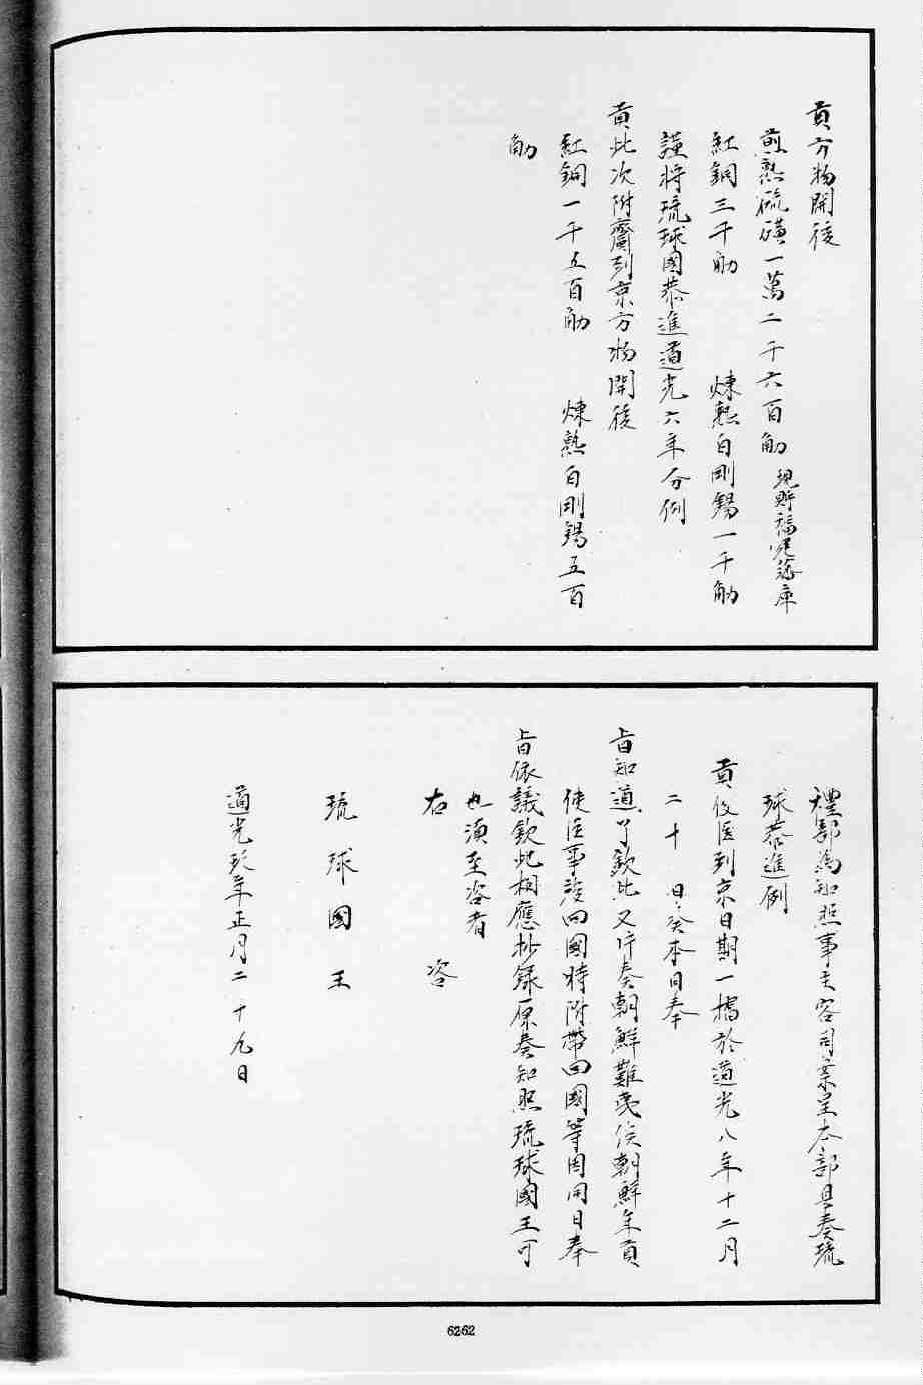 貢方物開後
煎熟硫磺一萬二千六百觔 現貯福建藩庫
紅銅三千觔 煉熟白剛錫一千觔
謹將琉球國恭進道光六年分例
貢此次附齎到京方物開後
紅銅一千五百觔 煉熟白剛錫五百
觔
禮部為知照事主客司案呈本部具奏琉
球恭進例
貢使臣到京日期一摺於道光八年十二月
二十 日癸本日奉
旨知道了欽此又片奏朝鮮難夷俟朝鮮年貢
使臣事竣回國時附帶回國等因同日奉
旨依議欽此相應抄錄原奏知照琉球國王可
也須至咨者
右 咨
琉球國王
道光玖年正月二十九日
6262